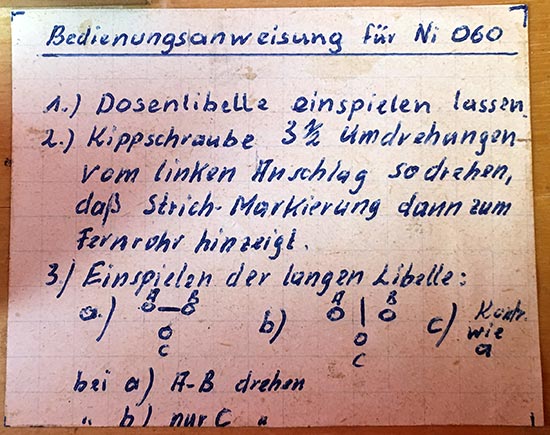 Bedienungsanweisung für Ni 060
1.) Dosenlibelle einspielen lassen.
2.) Kippschraube 3 1/2 Umdrehungen
vom linken Anschlag so drehen,
daß Strich-Markierung dann zum
Fernrohr hinzeigt.
3.) Einspielen der langen Libelle:
a.) A B b) A B c) Kontr.
wie
C C a
bei a) A-B drehen
" b) nur C "